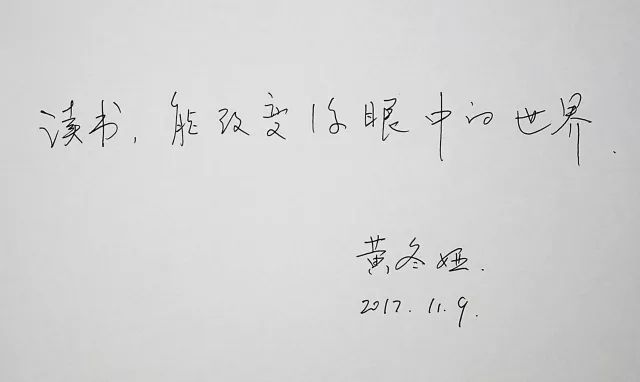 读书,能改变你眼中的世界.
黄冬娅.
2017.11.9.